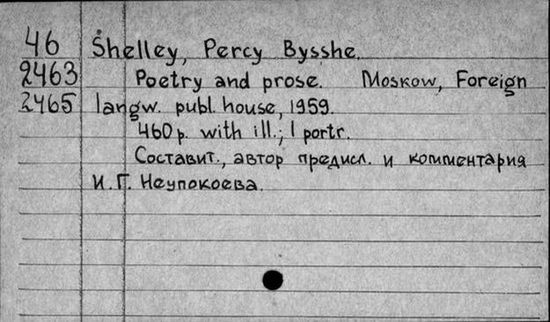 46 Shelley, Percy Bysshe.
2463 Poetry and prose. Moskow, Foreign
2465 langw. publ. house, 1959.
460 p. with ill.; 1 portr.
Составит., автор предисл. и комментария
И.Г. Неупокоева.